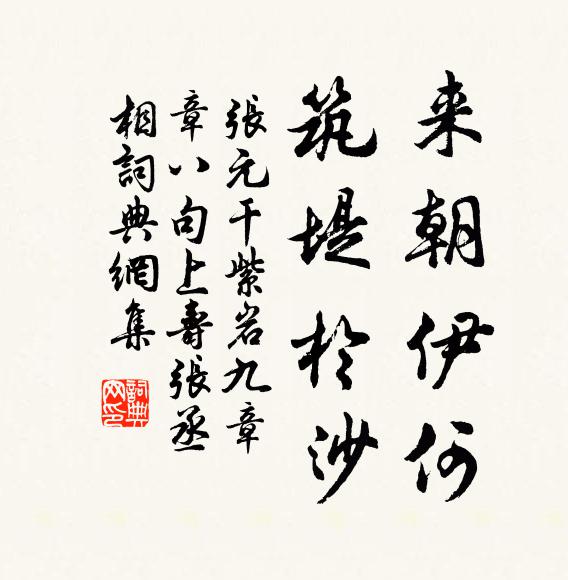 来朝伊何
筑堤於沙
張元干紫岩九章
章八句上壽張丞
相詞典網集
詞典网印